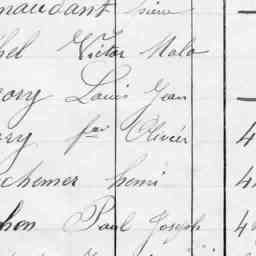 naudant
hel Victor Malo
cory Louis Jean
ry fcor Olivier 4
chemer henri 4
hon Paul Joseph 4